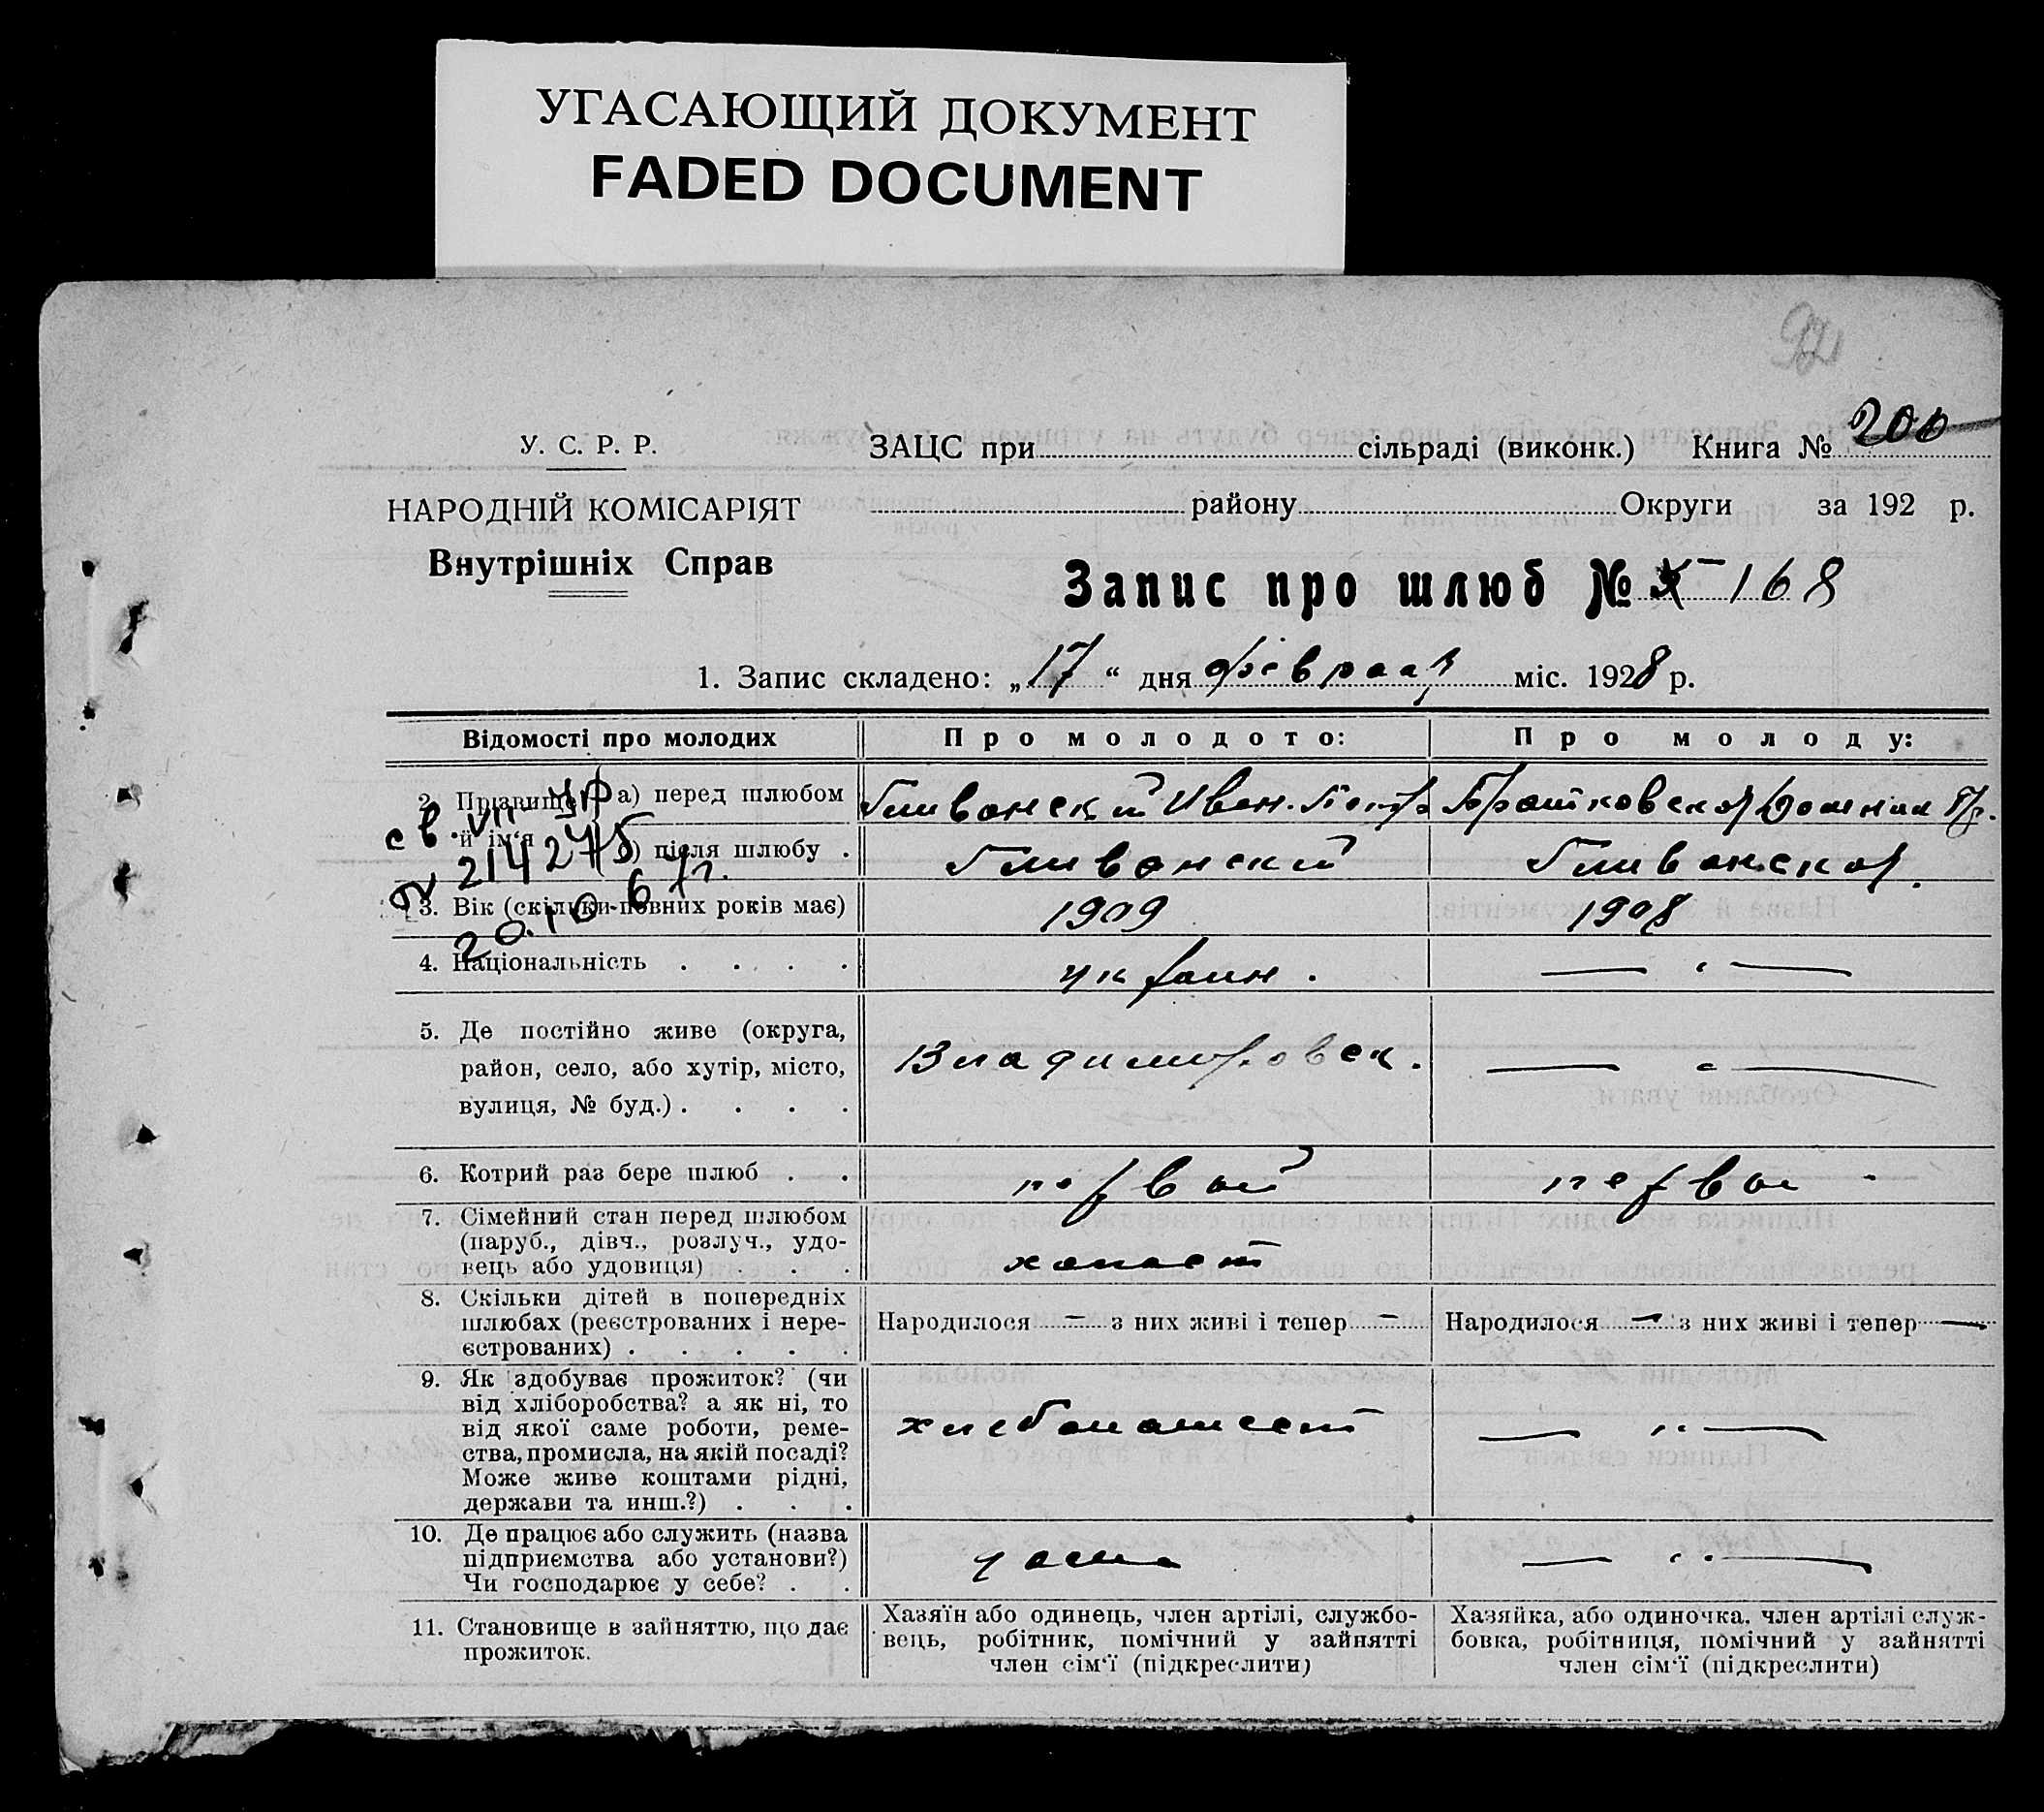 УГАСАЮЩИЙ ДОКУМЕНТ
FADED DOCUMENT
У. С. Р. Р.
НАРОДНІЙ КОМІСАРІЯТ
Внутрішніх Справ
ЗАЦС при сільраді (виконк.) Книга № 200
району Округи за 192 р.
Запис про шлюб № 168
1. Запис складено: „17“ дня февраля міс. 1928 р.
Відомості про молодих
Про молодого:
Про молоду:
2. Прізвище й ім'я
а) перед шлюбом
Гливанский Иван
б) після шлюбу .
Гливанский
Гливанская
св. УР
214275
20.10.67г.
3. Вік (скільки повних років має)
1909
1908
4. Національність . . . .
украин.
— " —
5. Де постійно живе (округа,
район, село, або хутір, місто,
вулиця, № буд.) . . . .
Владимировск.
— " —
6. Котрий раз бере шлюб . .
первый
первы
7. Сімейний стан перед шлюбом
(паруб., дівч., розлуч., удо-
вець або удовиця) . . .
холост
8. Скільки дітей в попередніх
шлюбах (реєстрованих і нере-
єстрованих) . . . . .
Народилося — з них живі і тепер —
Народилося — з них живі і тепер —
9. Як здобуває прожиток? (чи
від хліборобства? а як ні, то
від якої саме роботи, реме-
ства, промисла, на якій посаді?
Може живе коштами рідні,
держави та инш.?) . . .
хлебопашест
— " —
10. Де працює або служить (назва
підприємства або установи?)
Чи господарює у себе? . .
дома
— " —
11. Становище в зайняттю, що дає
прожиток.
Хазяїн або одинець, член артілі, службо-
вець, робітник, помічний у зайнятті
член сім'ї (підкреслити)
Хазяйка, або одиночка. член артілі служ-
бовка, робітниця, помічний у зайнятті
член сім'ї (підкреслити)